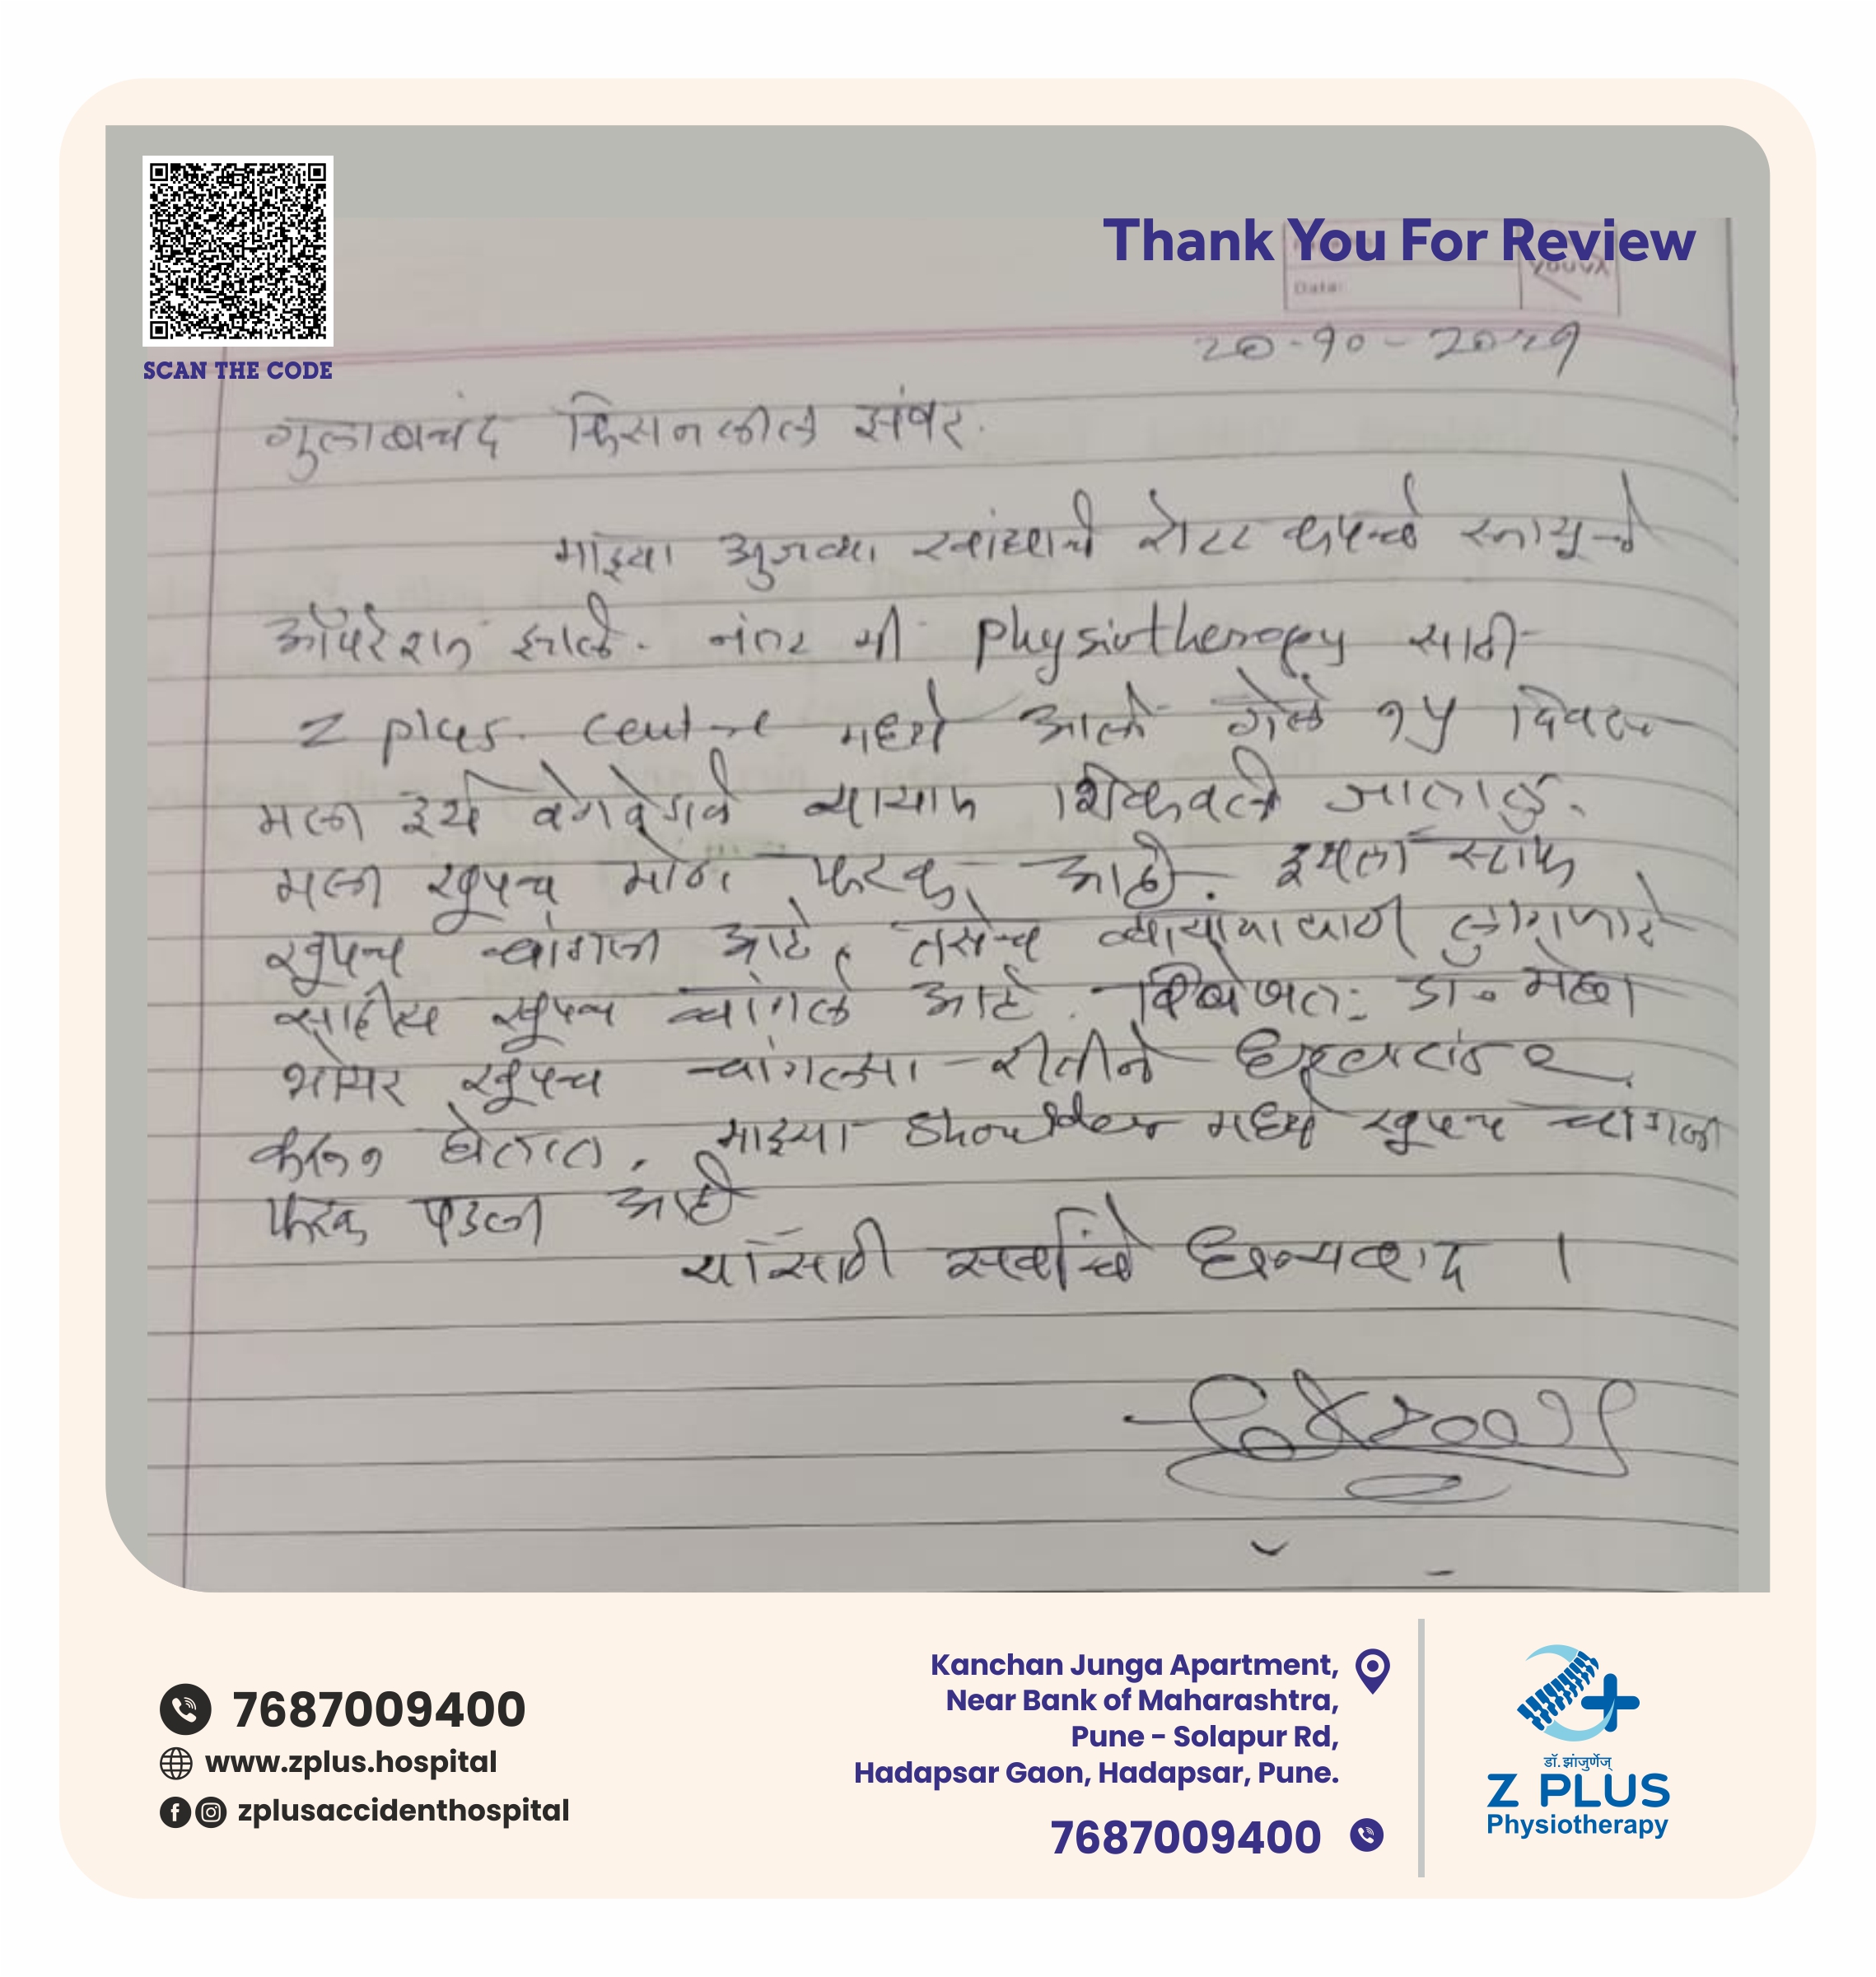 SCAN THE CODE
Thank You For Review
youva
Date:
गुलाबचंद किसनलाल झंवर.
माझ्या उजव्या खांद्याचे रोटर कपचे स्नायुचे
ऑपरेशन झाले. नंतर मी physiotherapy साठी
Z plus. centre मध्ये आलो गेले १५ दिवस
मला इथे वेगवेगळे व्यायाम शिकवले जातात.
मला खुपच मोठा फरक आहे. इथला स्टाफ
खुपच चांगला आहे, तसेच व्यायामासाठी लागणारे
साहीत्य खुपच चांगले आहे. विशेषत: डॉ. मेघा
भोयर खुपच चांगल्या रीतीने
करून घेतात. माझ्या Shoulder मध्ये खुपच चांगला
फरक पडला आहे
यांसाठी सर्वांचे धन्यवाद ।
7687009400
www.zplus.hospital
zplusaccidenthospital
Kanchan Junga Apartment,
Near Bank of Maharashtra,
Pune - Solapur Rd,
Hadapsar Gaon, Hadapsar, Pune.
7687009400
डॉ. झांजुर्णेज्
Z PLUS
Physiotherapy